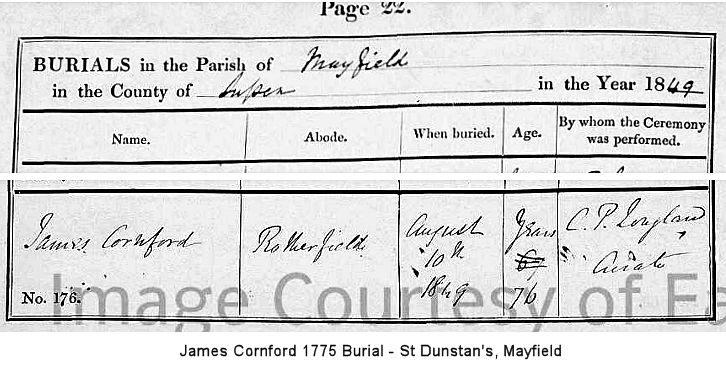 Page 22.
BURIALS in the Parish of Mayfield
in the County of Sussex in the Year 1849
Name. Abode. When buried. Age. By whom the Ceremony was performed.
James Cornford Rotherfield August 10th 1849 Years 76 C. P. Longland Curate
No. 176.
Image Courtesy of Ea
James Cornford 1775 Burial - St Dunstan's, Mayfield